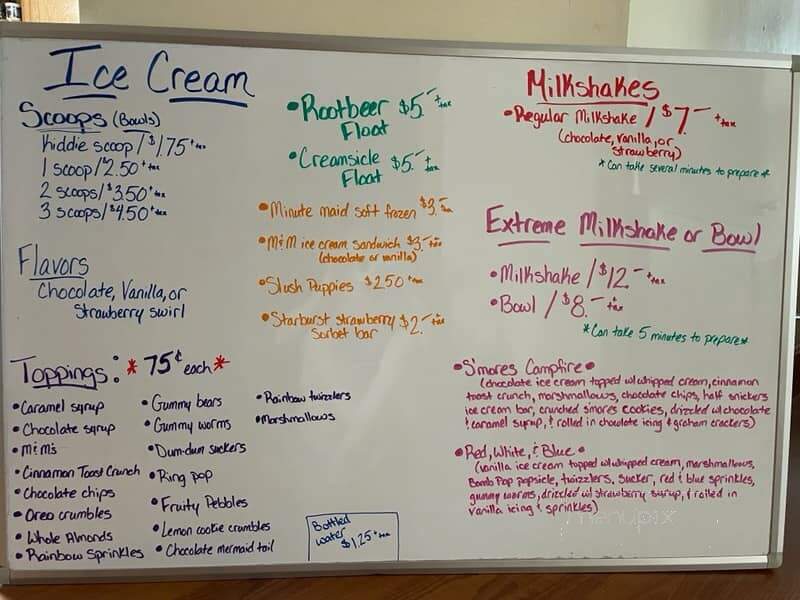 Ice Cream
Scoops (Bowls)
Kiddie scoop / $1.75 + tax
1 scoop / 2.50 + tax
2 scoops / $3.50 + tax
3 scoops / $4.50 + tax
Flavors
Chocolate, Vanilla, or
Strawberry swirl
•Rootbeer Float $5.- + tax
•Creamsicle Float $5.- + tax
•Minute maid soft frozen $3.- + tax
•M&M ice cream sandwich $3.- + tax
(chocolate or vanilla)
•Slush Puppies $2.50 + tax
•Starburst strawberry Sorbet bar $2.- + tax
Milkshakes
•Regular Milkshake / $7.- + tax
(chocolate, vanilla, or
strawberry)
*Can take several minutes to prepare*
Extreme Milkshake or Bowl
•Milkshake / $12.- + tax
•Bowl / $8.- + tax
*Can take 5 minutes to prepare*
•S'mores Campfire•
(chocolate ice cream topped w/ whipped cream, cinnamon
toast crunch, marshmallows, chocolate chips, half snickers
ice cream bar, crunched s'mores cookies, drizzled w/ chocolate
& caramel syrup, & rolled in chocolate icing & graham crackers)
•Red, White, & Blue•
(vanilla ice cream topped w/ whipped cream, marshmallows,
Bomb Pop popsicle, twizzlers, sucker, red & blue sprinkles,
gummy worms, drizzled w/ strawberry syrup, & rolled in
vanilla icing & sprinkles)
Toppings: *75¢ each*
•Caramel syrup
•Chocolate syrup
•M&M's
•Cinnamon Toast Crunch
•Chocolate chips
•Oreo crumbles
•Whole Almonds
•Rainbow Sprinkles
•Gummy bears
•Gummy worms
•Dum-dum suckers
•Ring pop
•Fruity Pebbles
•Lemon cookie crumbles
•Chocolate mermaid tail
•Rainbow twizzlers
•Marshmallows
Bottled
water
$1.25 + tax
menupix